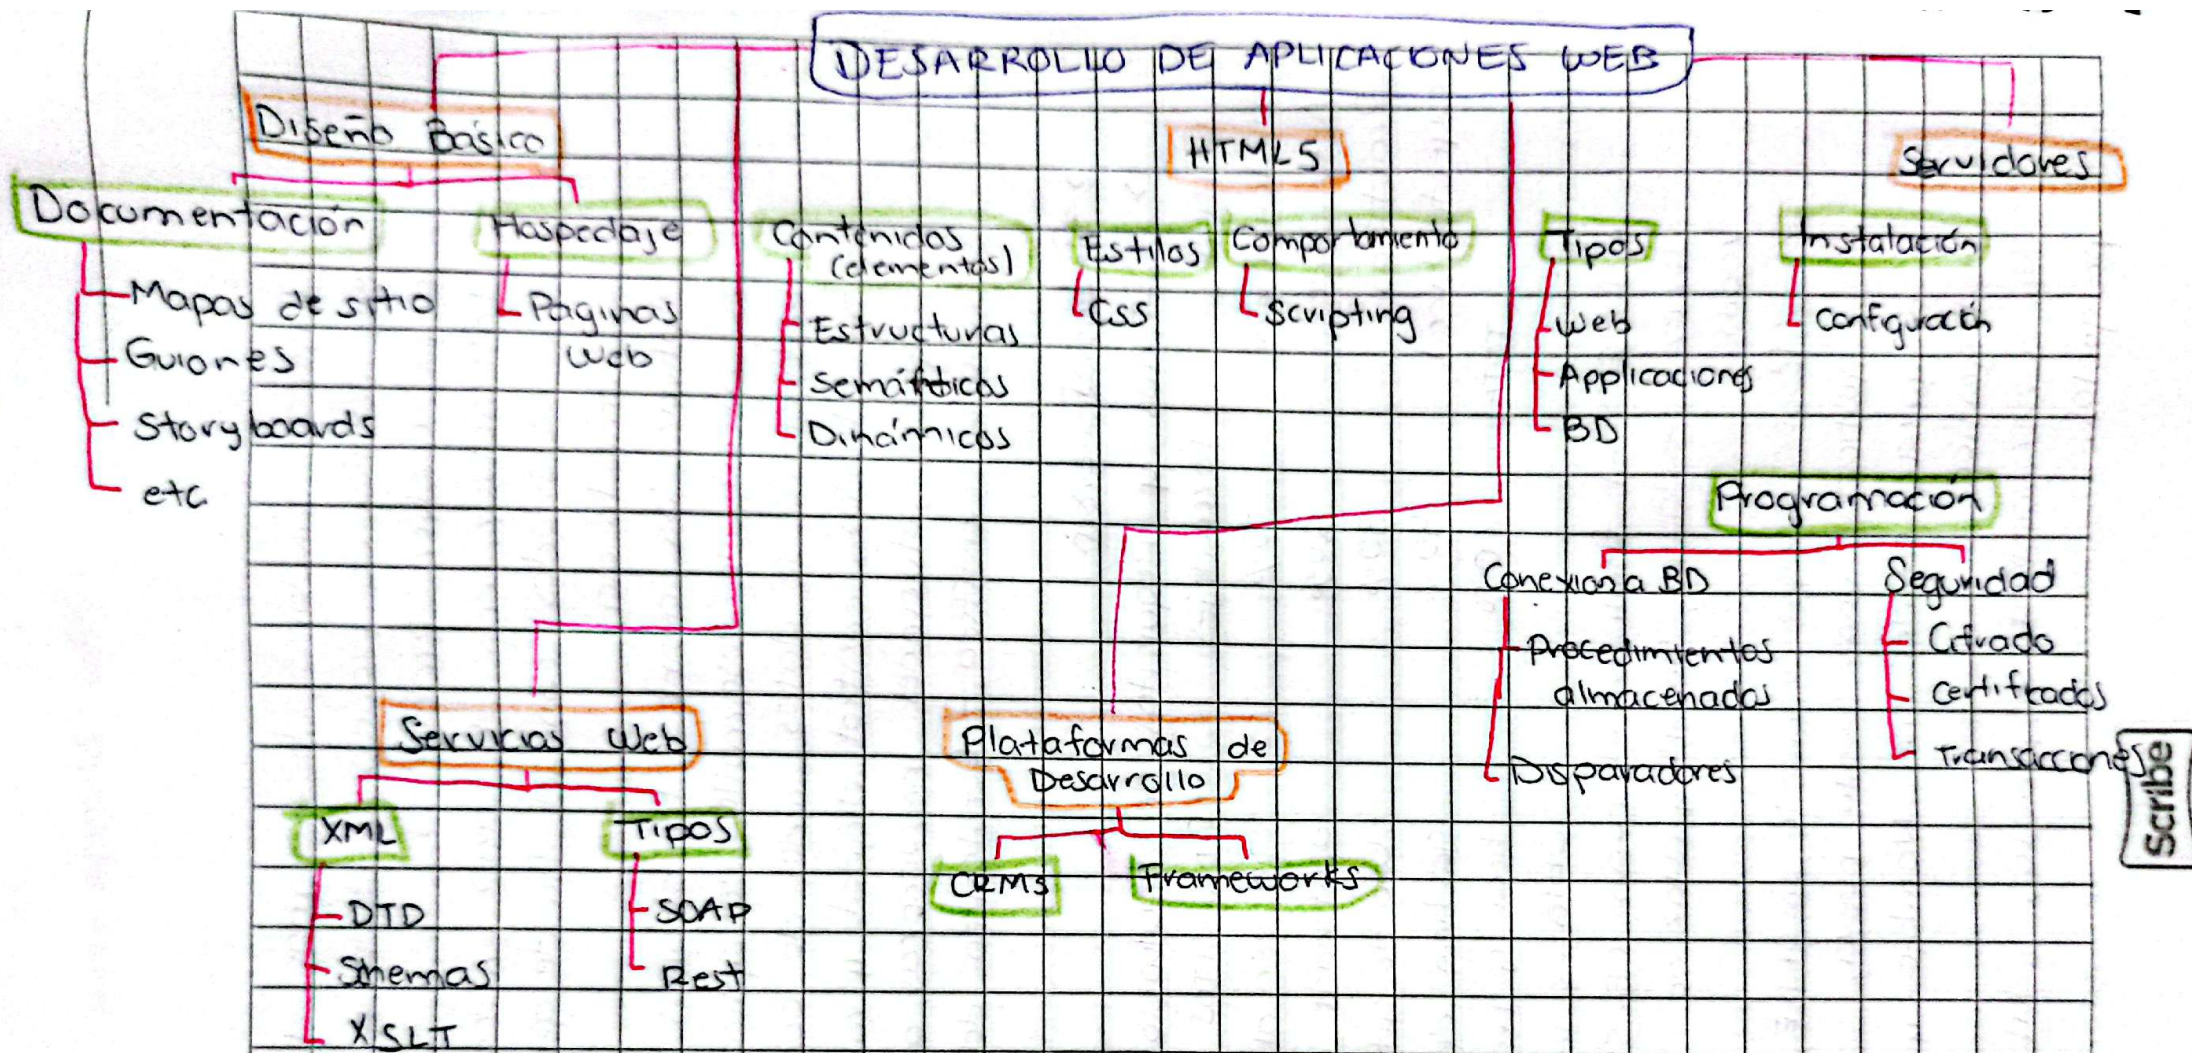 DESARROLLO DE APLICACIONES WEB
Diseño Básico
Documentación
Mapas de sitio
Guiones
Storyboards
etc
Hospedaje
Páginas
Web
HTML5
Contenidos
(elementos)
Estructuras
Semánticos
Dinámicos
Estilos
CSS
Comportamiento
Scripting
Servidores
Tipos
Web
Applicaciones
BD
Instalación
Configuración
Programación
Conexion a BD
Procedimientos
almacenados
Disparadores
Seguridad
Cifrado
Certificados
Transacciones
Servicios Web
XML
DTD
Schemas
XSLT
Tipos
SOAP
Rest
Plataformas de
Desarrollo
CRMs
Frameworks
Scribe